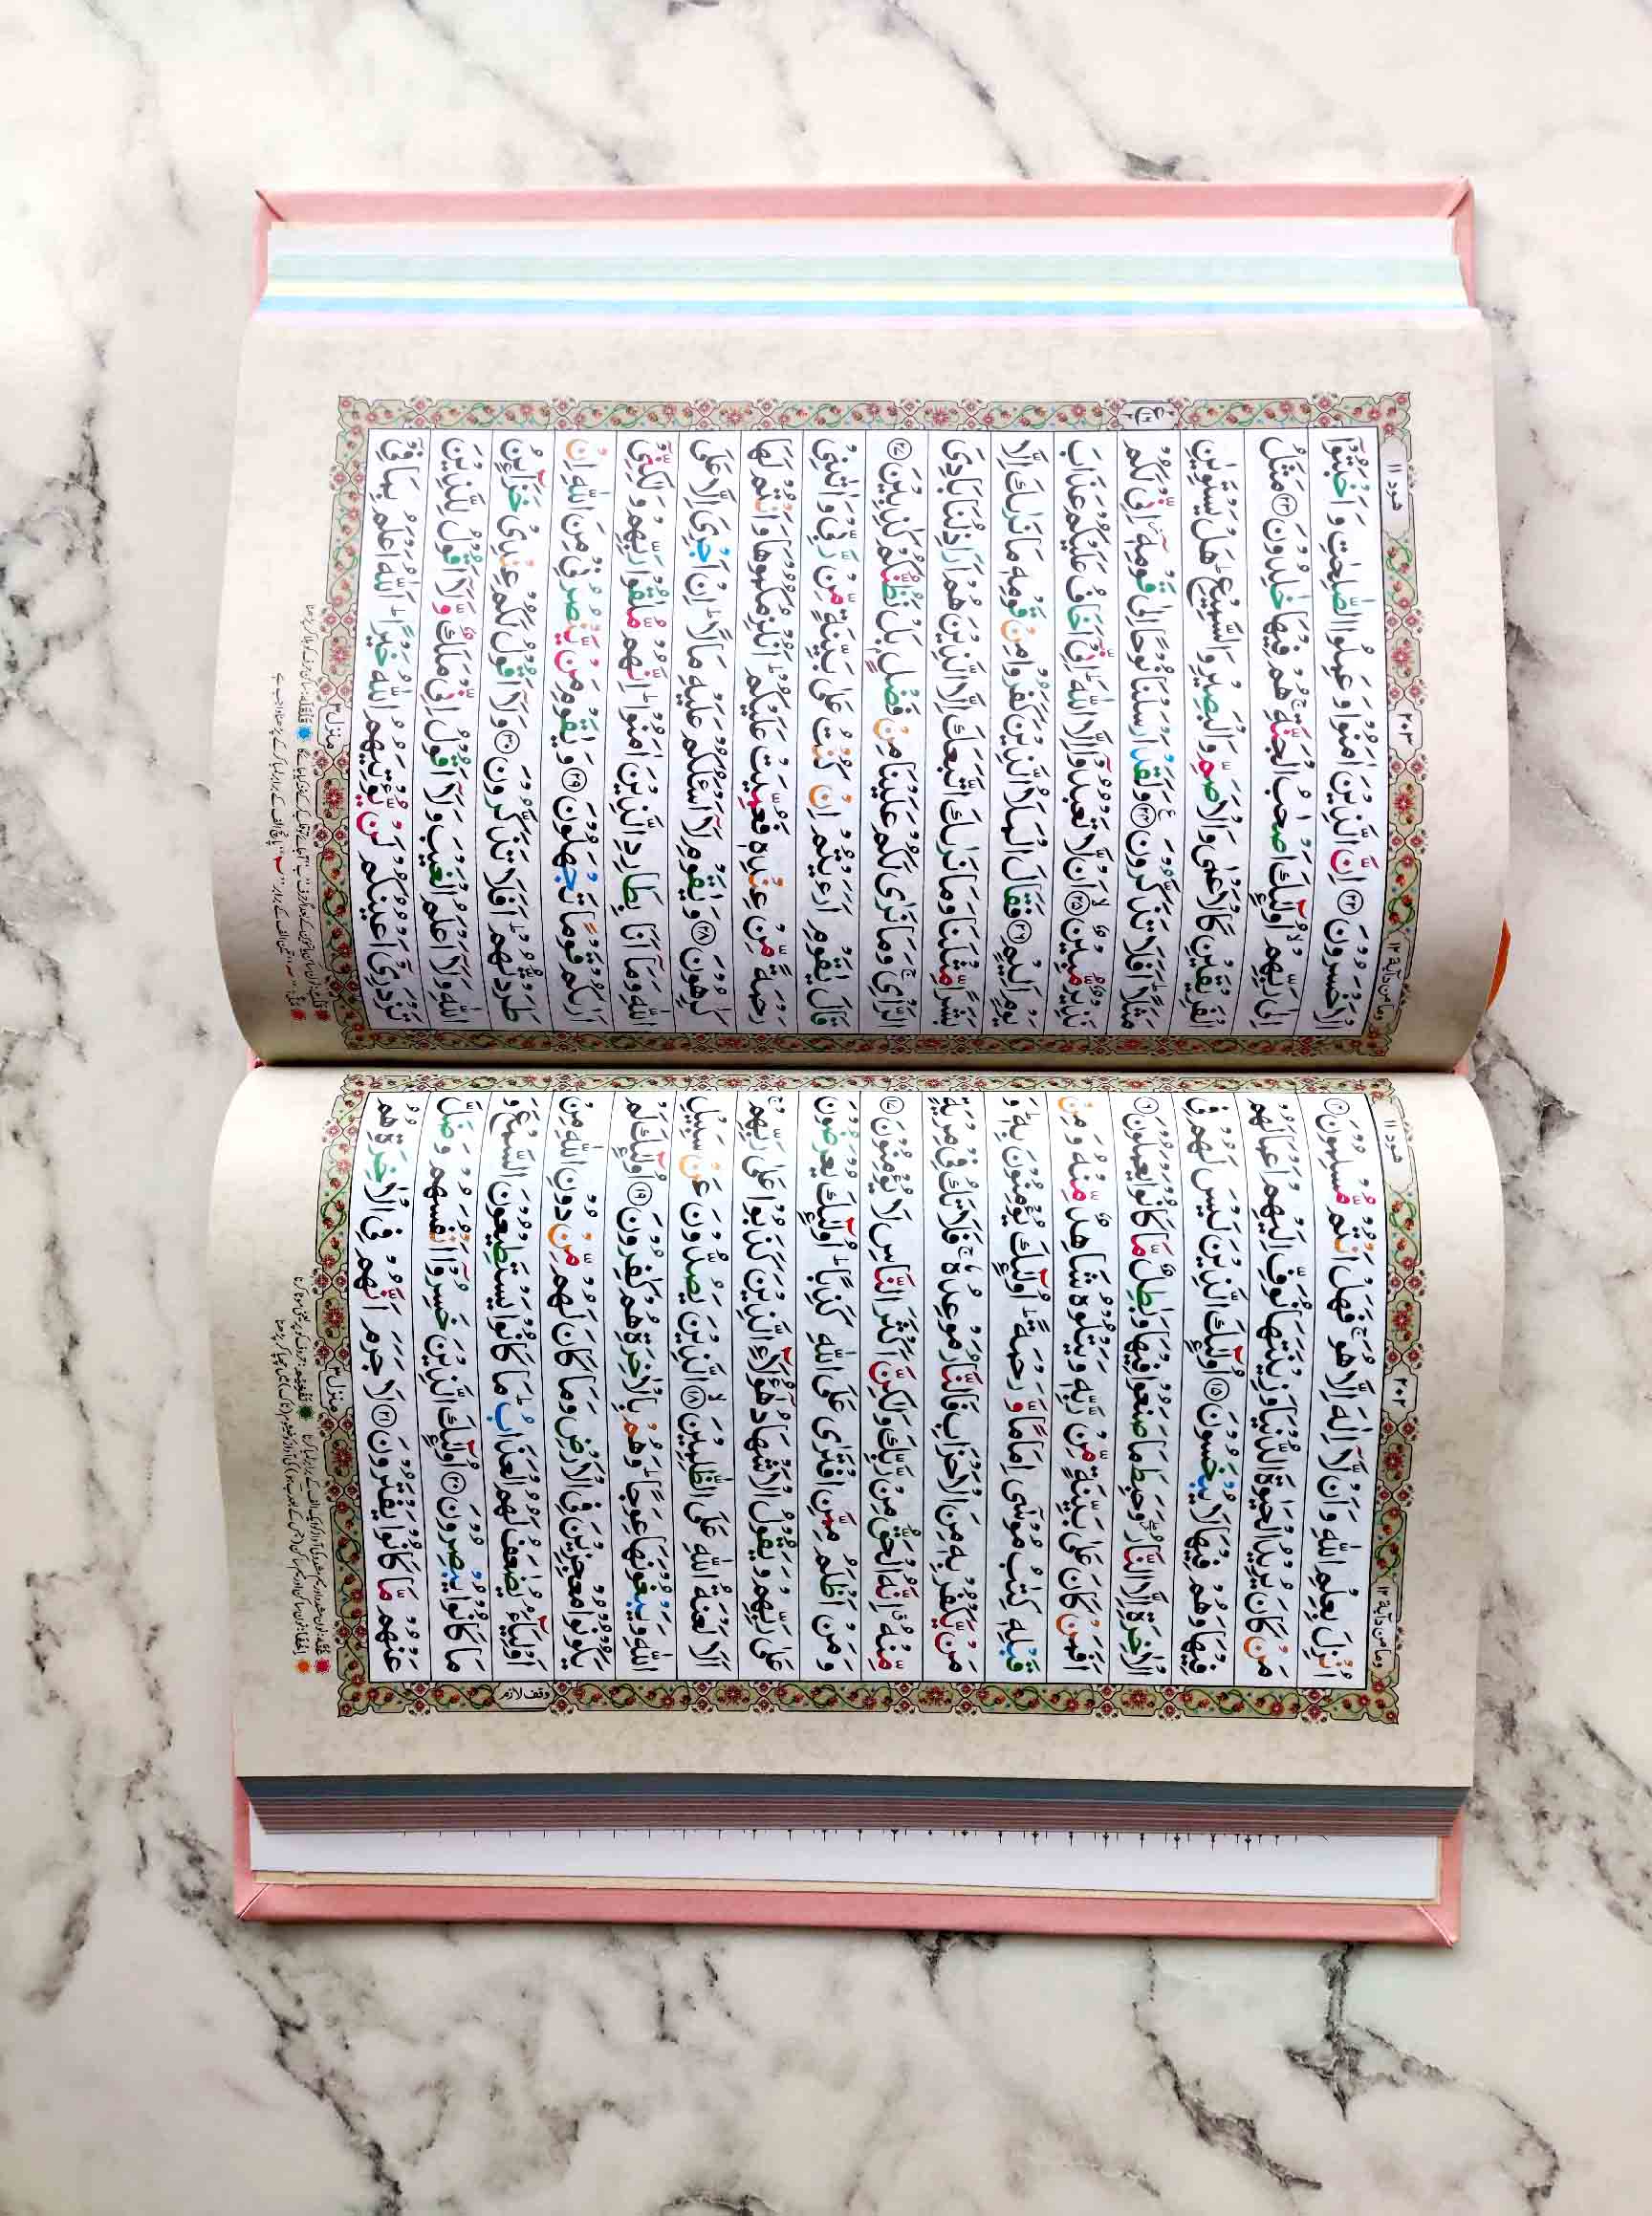 وما من دآبة ١٢ ٢٠٢ هود ١١
اُنْزِلَ بِعِلْمِ اللّٰهِ وَاَنْ لَّآ اِلٰهَ اِلَّا هُوَ ۚ فَهَلْ اَنْتُمْ مُّسْلِمُوْنَ ﴿۱۴﴾
مَنْ كَانَ يُرِيْدُ الْحَيٰوةَ الدُّنْيَا وَزِيْنَتَهَا نُوَفِّ اِلَيْهِمْ اَعْمَالَهُمْ
فِيْهَا وَهُمْ فِيْهَا لَا يُبْخَسُوْنَ ﴿۱۵﴾ اُولٰٓئِكَ الَّذِيْنَ لَيْسَ لَهُمْ فِى
الْاٰخِرَةِ اِلَّا النَّارُ ۖ وَحَبِطَ مَا صَنَعُوْا فِيْهَا وَبٰطِلٌ مَّا كَانُوْا يَعْمَلُوْنَ ﴿۱۶﴾
اَفَمَنْ كَانَ عَلٰى بَيِّنَةٍ مِّنْ رَّبِّهٖ وَيَتْلُوْهُ شَاهِدٌ مِّنْهُ وَمِنْ
قَبْلِهٖ كِتٰبُ مُوْسٰٓى اِمَامًا وَّرَحْمَةً ؕ اُولٰٓئِكَ يُؤْمِنُوْنَ بِهٖ ؕ وَ
مَنْ يَّكْفُرْ بِهٖ مِنَ الْاَحْزَابِ فَالنَّارُ مَوْعِدُهٗ ۚ فَلَا تَكُ فِىْ مِرْيَةٍ
مِّنْهُ ۗ اِنَّهُ الْحَقُّ مِنْ رَّبِّكَ وَلٰكِنَّ اَكْثَرَ النَّاسِ لَا يُؤْمِنُوْنَ ﴿۱۷﴾
وَمَنْ اَظْلَمُ مِمَّنِ افْتَرٰى عَلَى اللّٰهِ كَذِبًا ؕ اُولٰٓئِكَ يُعْرَضُوْنَ
عَلٰى رَبِّهِمْ وَيَقُوْلُ الْاَشْهَادُ هٰٓؤُلَآءِ الَّذِيْنَ كَذَبُوْا عَلٰى رَبِّهِمْ ۚ
اَلَا لَعْنَةُ اللّٰهِ عَلَى الظّٰلِمِيْنَ ﴿۱۸﴾ الَّذِيْنَ يَصُدُّوْنَ عَنْ سَبِيْلِ
اللّٰهِ وَيَبْغُوْنَهَا عِوَجًا ؕ وَهُمْ بِالْاٰخِرَةِ هُمْ كٰفِرُوْنَ ﴿۱۹﴾ اُولٰٓئِكَ لَمْ
يَكُوْنُوْا مُعْجِزِيْنَ فِى الْاَرْضِ وَمَا كَانَ لَهُمْ مِّنْ دُوْنِ اللّٰهِ مِنْ
وقف لازم
اَوْلِيَآءَ ۘ يُضٰعَفُ لَهُمُ الْعَذَابُ ؕ مَا كَانُوْا يَسْتَطِيْعُوْنَ السَّمْعَ وَ
مَا كَانُوْا يُبْصِرُوْنَ ﴿۲۰﴾ اُولٰٓئِكَ الَّذِيْنَ خَسِرُوْٓا اَنْفُسَهُمْ وَضَلَّ
عَنْهُمْ مَّا كَانُوْا يَفْتَرُوْنَ ﴿۲۱﴾ لَا جَرَمَ اَنَّهُمْ فِى الْاٰخِرَةِ هُمُ
منزل ٣
وما من دآبة ١٢ ٢٠٣ هود ١١
الْاَخْسَرُوْنَ ﴿۲۲﴾ اِنَّ الَّذِيْنَ اٰمَنُوْا وَعَمِلُوا الصّٰلِحٰتِ وَاَخْبَتُوْٓا
اِلٰى رَبِّهِمْ ۙ اُولٰٓئِكَ اَصْحٰبُ الْجَنَّةِ ۚ هُمْ فِيْهَا خٰلِدُوْنَ ﴿۲۳﴾ مَثَلُ
الْفَرِيْقَيْنِ كَالْاَعْمٰى وَالْاَصَمِّ وَالْبَصِيْرِ وَالسَّمِيْعِ ؕ هَلْ يَسْتَوِيٰنِ
مَثَلًا ؕ اَفَلَا تَذَكَّرُوْنَ ﴿۲۴﴾ وَلَقَدْ اَرْسَلْنَا نُوْحًا اِلٰى قَوْمِهٖٓ ۖ اِنِّىْ لَكُمْ
نَذِيْرٌ مُّبِيْنٌ ﴿۲۵﴾ اَنْ لَّا تَعْبُدُوْٓا اِلَّا اللّٰهَ ؕ اِنِّىْٓ اَخَافُ عَلَيْكُمْ عَذَابَ
يَوْمٍ اَلِيْمٍ ﴿۲۶﴾ فَقَالَ الْمَلَاُ الَّذِيْنَ كَفَرُوْا مِنْ قَوْمِهٖ مَا نَرٰىكَ اِلَّا
بَشَرًا مِّثْلَنَا وَمَا نَرٰىكَ اتَّبَعَكَ اِلَّا الَّذِيْنَ هُمْ اَرَاذِلُنَا بَادِىَ
الرَّاْىِ ۚ وَمَا نَرٰى لَكُمْ عَلَيْنَا مِنْ فَضْلٍۢ بَلْ نَظُنُّكُمْ كٰذِبِيْنَ ﴿۲۷﴾
قَالَ يٰقَوْمِ اَرَءَيْتُمْ اِنْ كُنْتُ عَلٰى بَيِّنَةٍ مِّنْ رَّبِّىْ وَاٰتٰىنِىْ
رَحْمَةً مِّنْ عِنْدِهٖ فَعُمِّيَتْ عَلَيْكُمْ ؕ اَنُلْزِمُكُمُوْهَا وَاَنْتُمْ لَهَا
كٰرِهُوْنَ ﴿۲۸﴾ وَيٰقَوْمِ لَآ اَسْئَلُكُمْ عَلَيْهِ مَالًا ؕ اِنْ اَجْرِىَ اِلَّا عَلَى
اللّٰهِ وَمَآ اَنَا بِطَارِدِ الَّذِيْنَ اٰمَنُوْا ؕ اِنَّهُمْ مُّلٰقُوْا رَبِّهِمْ وَلٰكِنِّىْٓ
اَرٰىكُمْ قَوْمًا تَجْهَلُوْنَ ﴿۲۹﴾ وَيٰقَوْمِ مَنْ يَّنْصُرُنِىْ مِنَ اللّٰهِ اِنْ
طَرَدْتُّهُمْ ؕ اَفَلَا تَذَكَّرُوْنَ ﴿۳۰﴾ وَلَآ اَقُوْلُ لَكُمْ عِنْدِىْ خَزَآئِنُ
اللّٰهِ وَلَآ اَعْلَمُ الْغَيْبَ وَلَآ اَقُوْلُ اِنِّىْ مَلَكٌ وَّلَآ اَقُوْلُ لِلَّذِيْنَ
تَزْدَرِىْٓ اَعْيُنُكُمْ لَنْ يُّؤْتِيَهُمُ اللّٰهُ خَيْرًا ؕ اَللّٰهُ اَعْلَمُ بِمَا فِىْٓ
منزل ٣